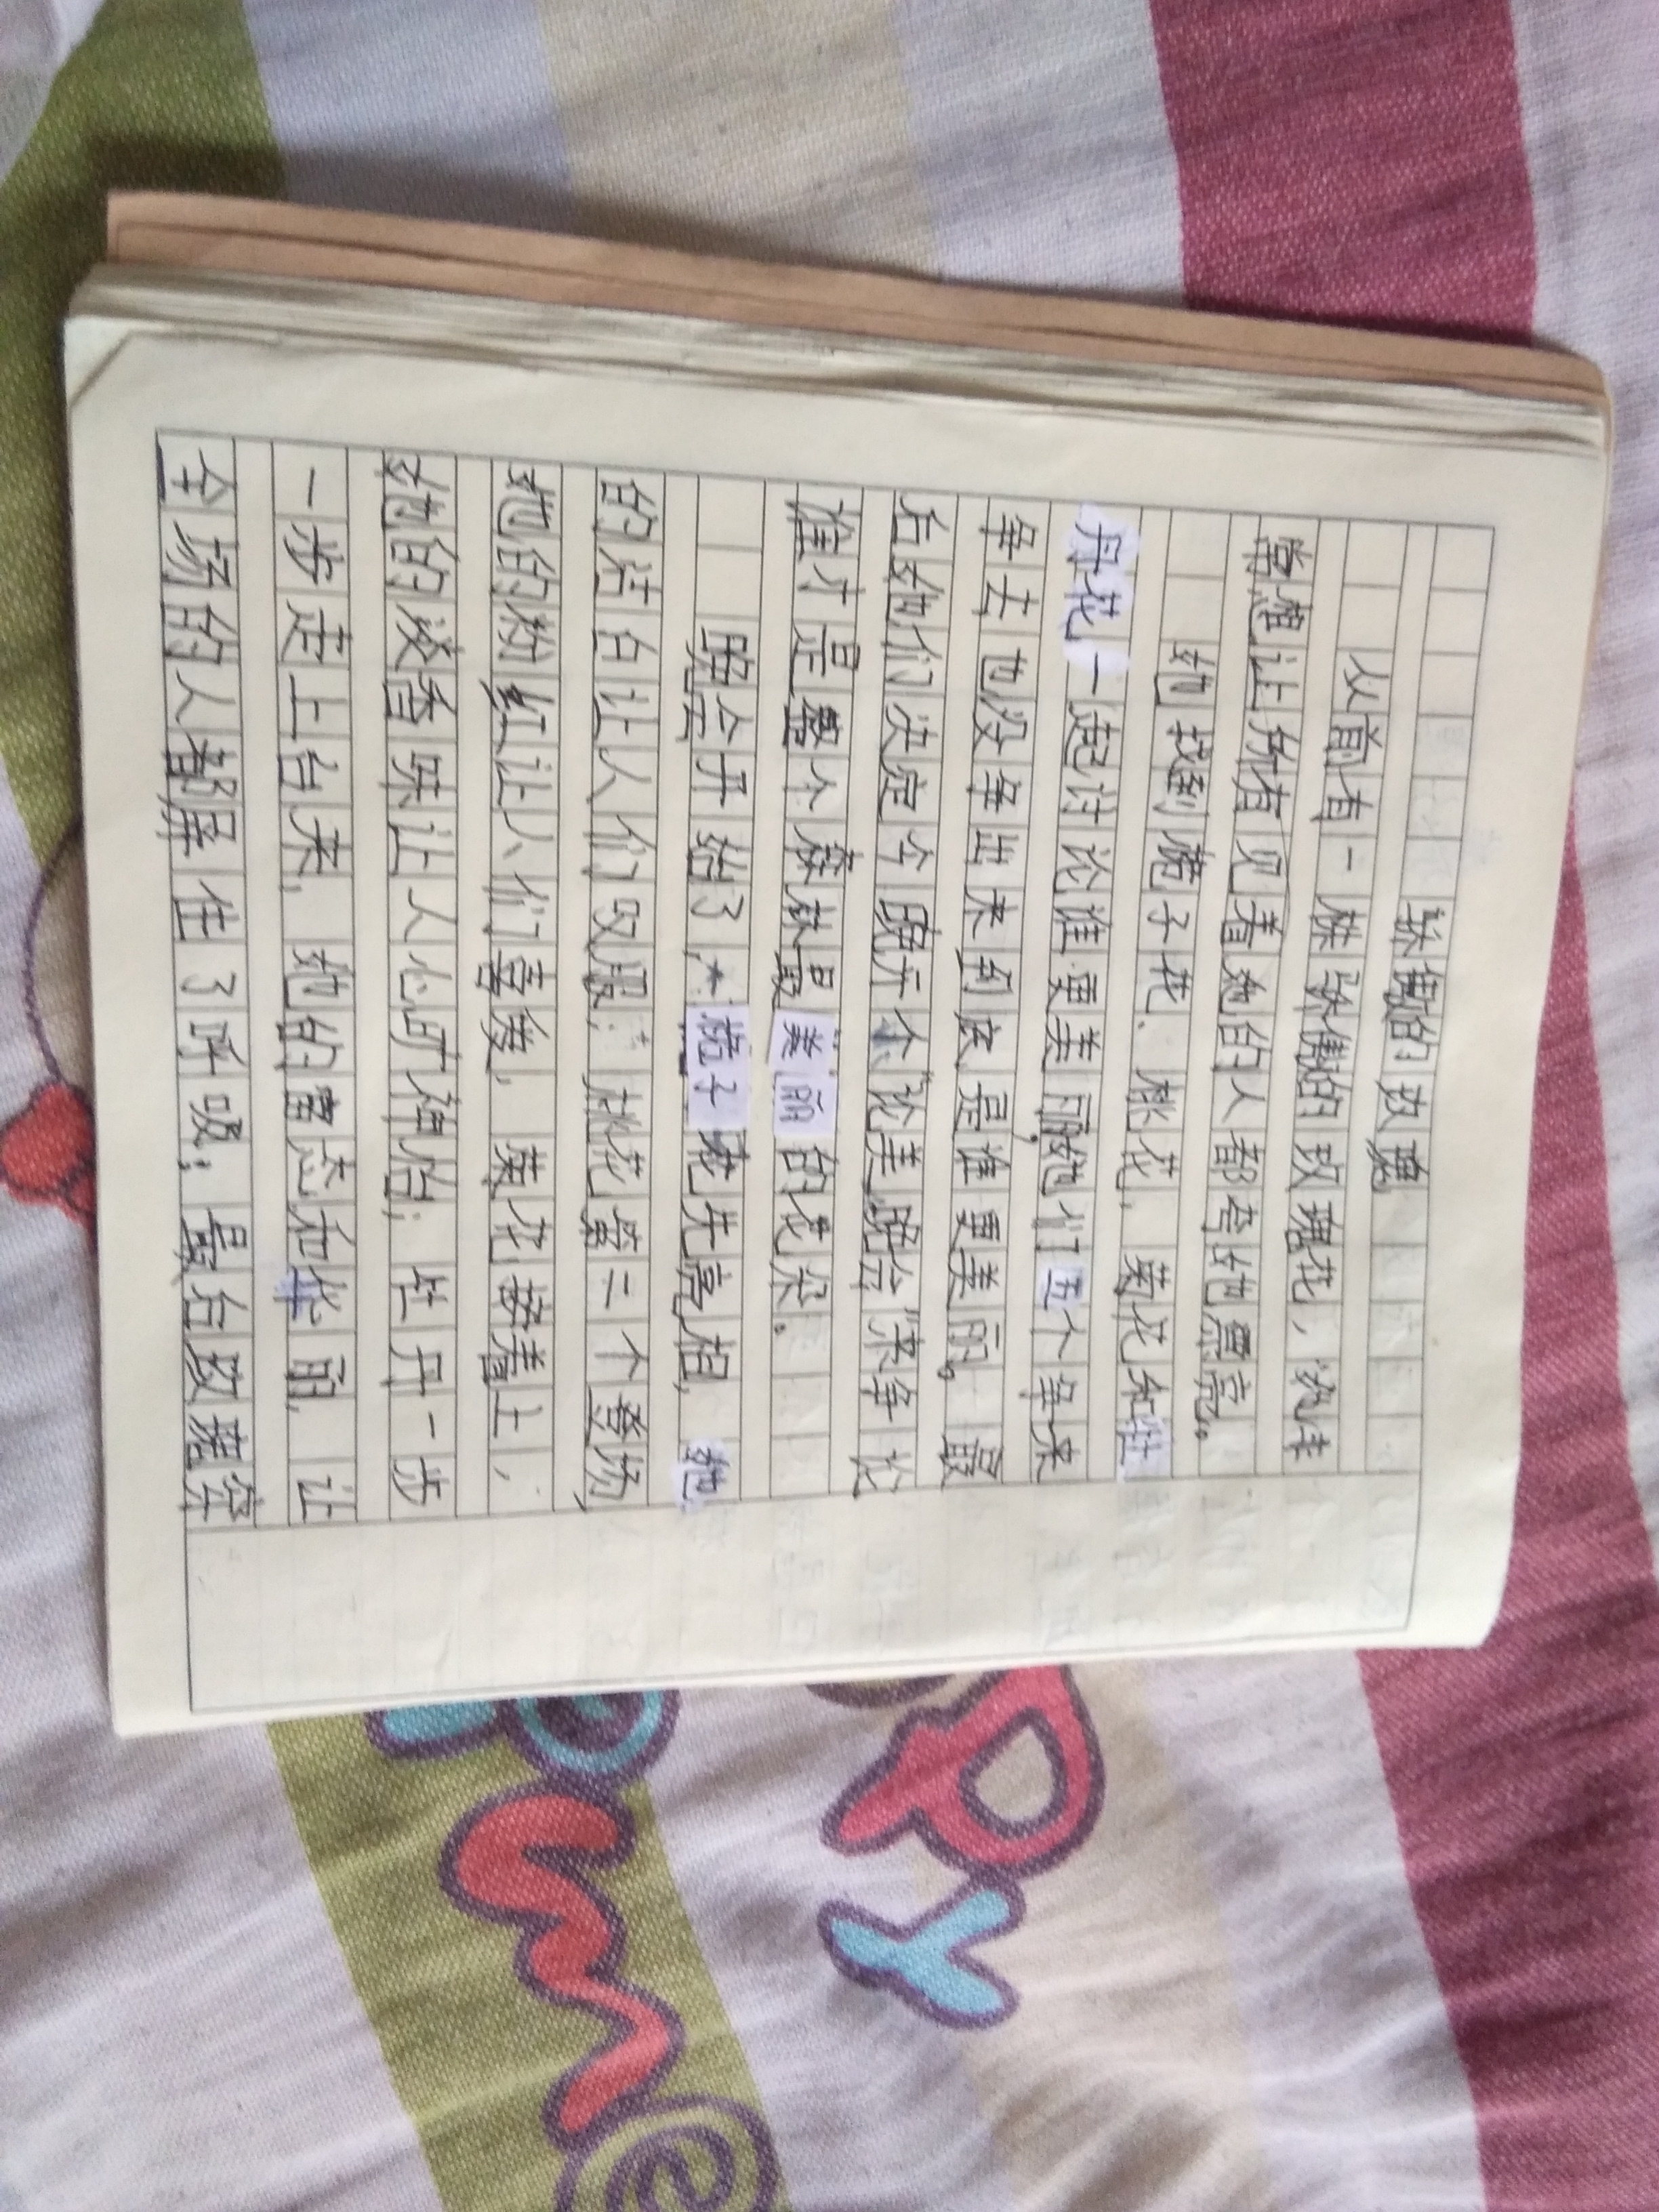 骄傲的玫瑰
从前有一株骄傲的玫瑰花,她非
常想让所有见着她的人都夸她漂亮。
她找到栀子花、桃花,菊花和牡
丹花一起讨论谁更美丽,她们五个争来
争去也没争出来到底是谁更美丽。最
后她们决定今晚开个“论美晚会”来争论
谁才是整个森林最美丽的花朵。
晚会开始了,栀子花先亮相,她
的洁白让人们叹服,桃花第二个登场,
她的粉红让人们喜爱,菊花接着上,
她的淡香味让人心旷神怡;牡丹一步
一步走上台来,她的富态和华丽,让
全场的人都屏住了呼吸;最后玫瑰穿